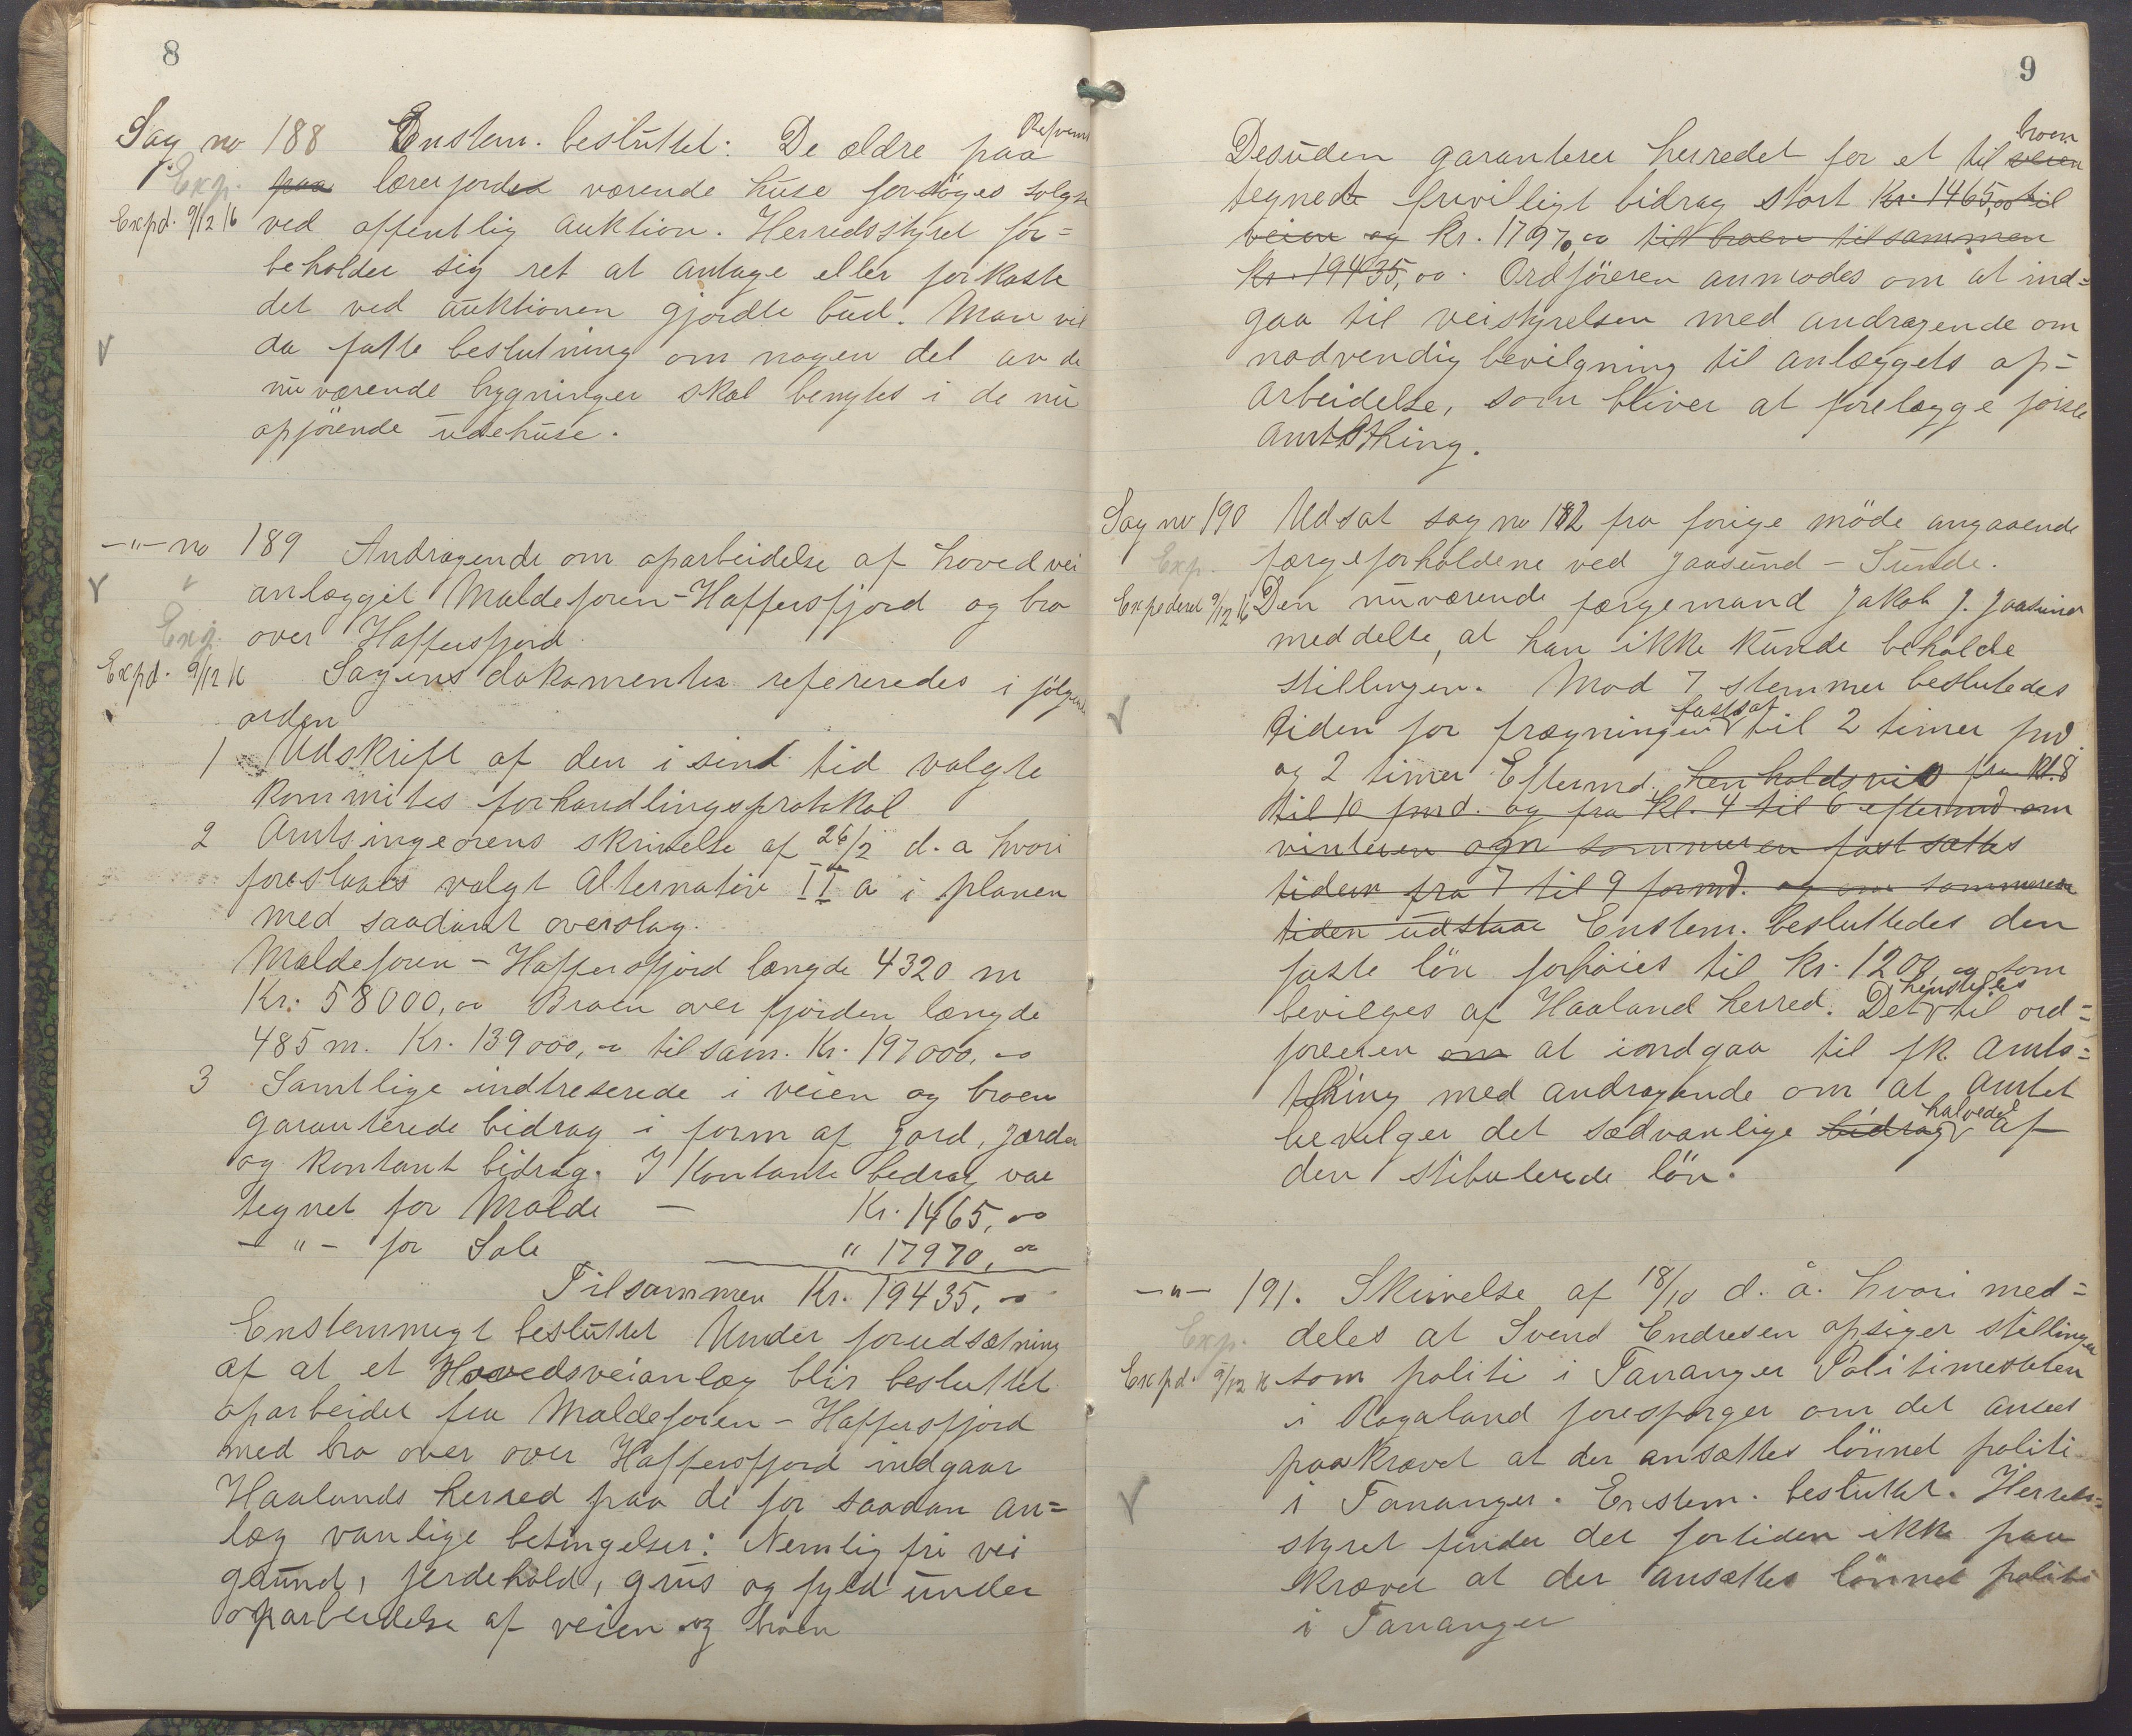 8
Sag no 188 Enstem. besluttet: De ældre paa Refsnes
Exp. paa lærerjorden værende huse forsöges solgt
Expd. 9/12 16 ved offentlig auktion. Herredsstyret for=
beholder sig ret at antage eller forkaste
det ved auktionen gjordte bud. Man vil
da fatte beslutning om nogen del av de
nuværende bygninger skal benyttes i de nu
opförende udehuse.
-"- no 189 Andragende om oparbeidelse af hovedvei
anlægget Maldeforen - Haffersfjord og bro
Exp. over Haffersfjord.
Expd. 9/12 16 Sagens dokumenter refereredes i fölgende
orden
1 Udskrift af den i sind tid valgte
Kommites forhandlingsprotokol
2 Amtsingeörens skrivelse af 26/2 d. a hvori
foreslaaes valgt Alternativ II a i planen
med saadant overslag.
Maldeforen - Haffersfjord længde 4320 m
Kr. 58000,00 Broen over fjorden længde
485 m. Kr. 139000,00 tilsam. Kr. 197000,00
3 Samtlige indtreserede i veien og broen
garanterede bidrag i form af jord, jærder
og kontant bidrag. I Kontante bedrag var
tegnet for Malde — Kr. 1465,00
- " - for Sole " 17970,00
Tilsammen Kr. 19435,00
Enstemmigt besluttet Under forudsætning
af at et Hovedsveianlæg blir besluttet
oparbeidet fra Maldeforen - Haffersfjord
med bro over over Haffersfjord indgaar
Haalands herred paa de for saadan an=
læg vanlige betingelser: Nemlig fri vei
grund, jerdehold, grus og fyld under
oparbeidelse af veien og broen
9
Desuden garanterer herredet for et til veien broen
tegnede frivilligt bidrag stort Kr. 1465,00 til
veien og kr. 17970,00 til broen tilsammen
Kr. 19435,00. Ordföreren anmodes om at ind=
gaa til veistyrelsen med andragende om
nodvendig bevilgning til anlæggets op=
arbeidelse, som bliver at forelægge förste
Amtsthing.
Sag no 190 Udsat sag no 182 fra forige möde angaaende
Exp. færgeforholdene ved Jaasund - Sunde.
Expederet 9/12 16 Den nuværende færgemand Jakob J. Jaasund
meddelte, at han ikke kunde beholde
stillingen. Mod 7 stemmer beslutedes
tiden for frægningen fastsat til 2 timer fmd
og 2 timer Eftermd. henholdsvis fra Kl. 8
til 10 fmd. og fra Kl. 4 til 6 eftermd om
vinteren ogm sommeren fastsættes
tiden fra 7 til 9 formd. og om sommeren
tiden udstaae Enstem. besluttedes den
faste lön forhöies til kr. 1200,00 som
bevilges af Haaland herred. Det henstilles til ord=
föreren om at indgaa til fk. Amts=
thing med andragende om at Amtet
bevelger det sædvanlige bidrag halvedel af
den stibulerede lön.
-"- 191. Skrivelse af 18/10 d. å. hvori med=
Exp. deles at Svend Endresen opsiger stillingen
Expd. 9/12 16 som politi i Tananger Politimesteren
i Rogaland foresporger om det ansees
paakrævet at der ansættes lönnet politi
i Tananger. Enstem. besluttet. Herreds=
styret finder det fortiden ikke paa
krævet at der ansættes lönnet politi
i Tananger